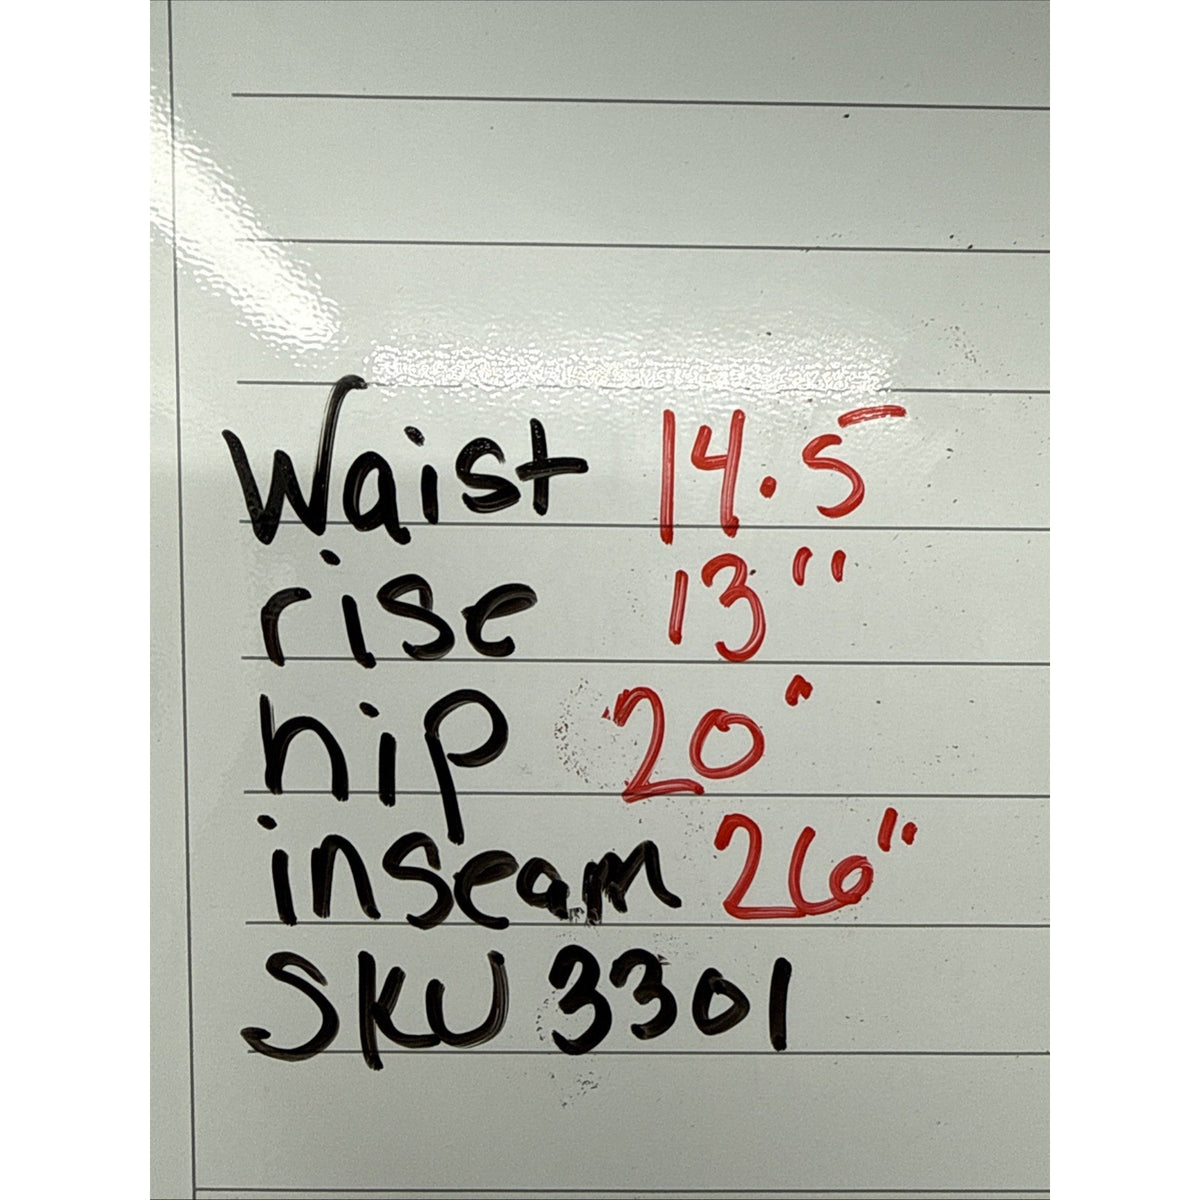 Waist 14.5
rise 13"
hip 20"
inseam 26"
SKU 3301